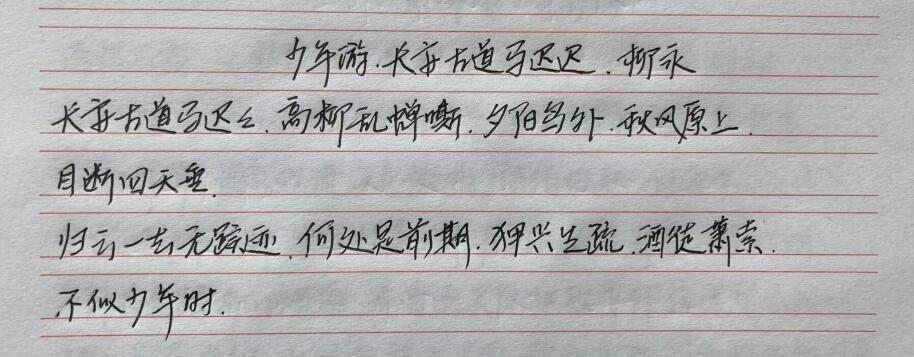 少年游.长安古道马迟迟.柳永
长安古道马迟々.高柳乱蝉嘶.夕阳鸟外.秋风原上.
目断四天垂.
归云一去无踪迹.何处是前期.狎兴生疏.酒徒萧索.
不似少年时.